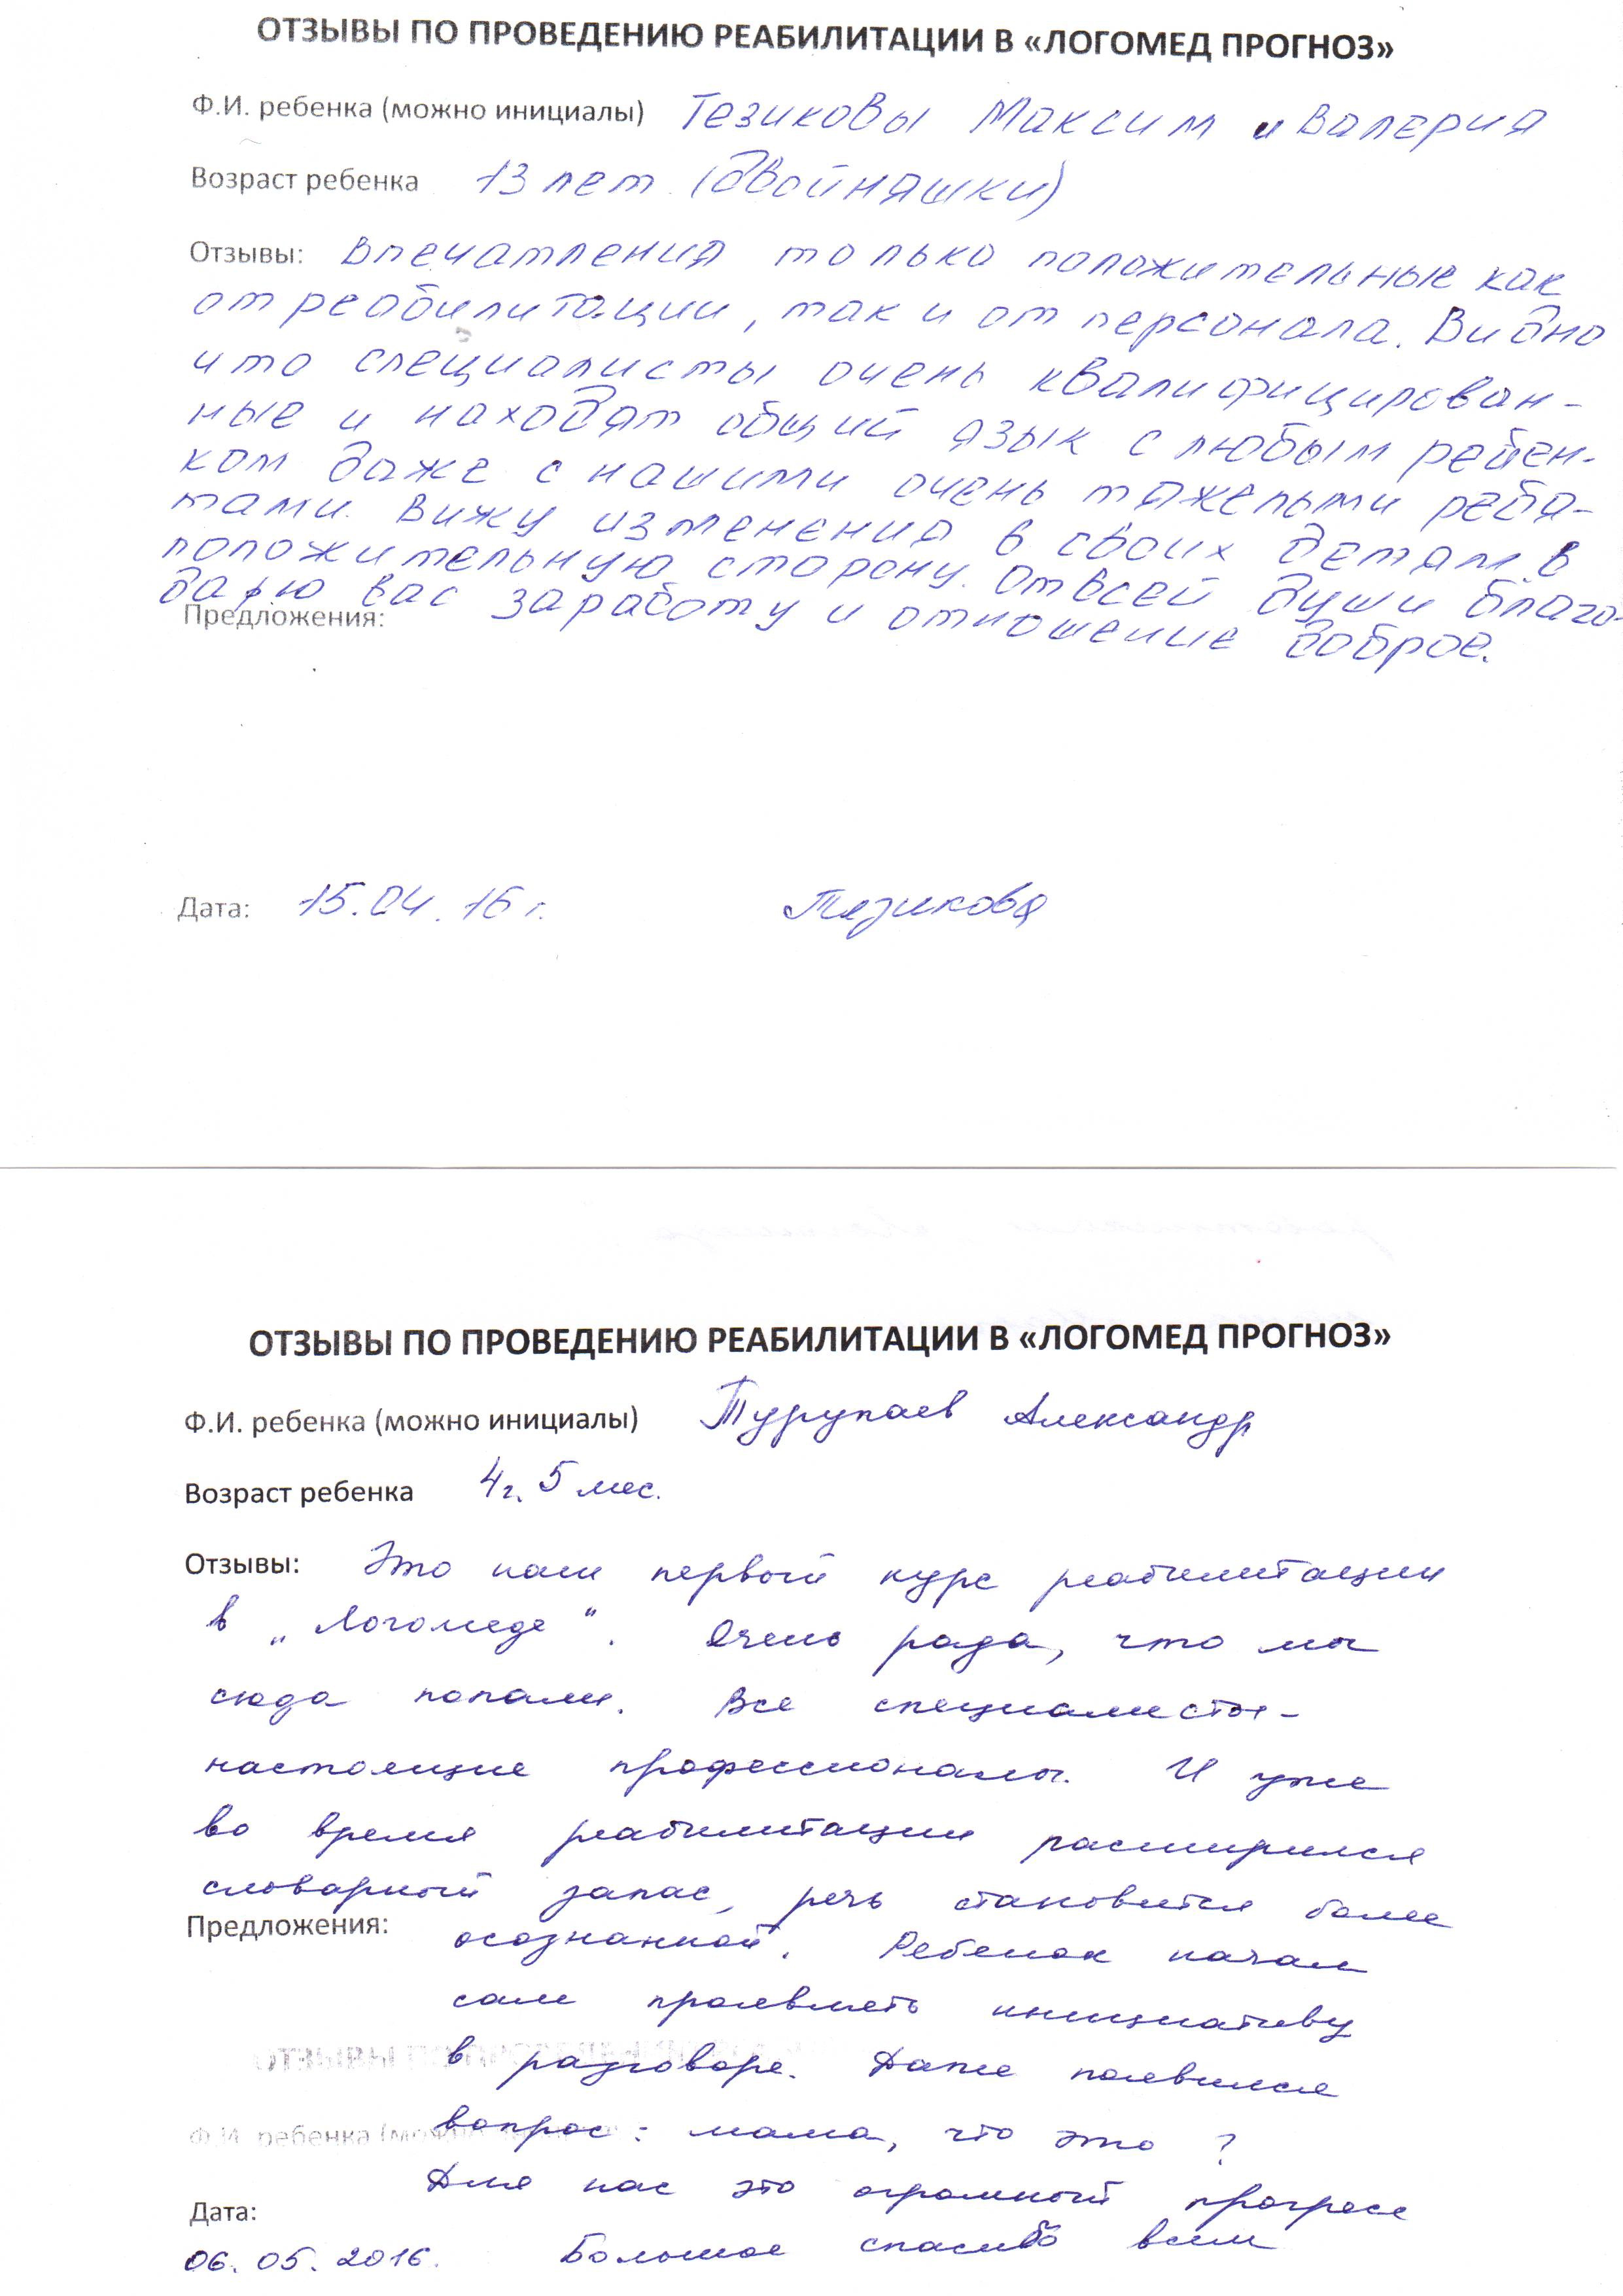 ОТЗЫВЫ ПО ПРОВЕДЕНИЮ РЕАБИЛИТАЦИИ В «ЛОГОМЕД ПРОГНОЗ»
Ф.И. ребенка (можно инициалы) Тезиковы Максим и Валерия
Возраст ребенка 13 лет (двойняшки)
Отзывы: Впечатления только положительные как
от реабилитации, так и от персонала. Видно
что специалисты очень квалифицирован-
ные и находят общий язык с любым ребен-
ком даже с нашими очень тяжелыми ребя-
тами. Вижу изменения в своих детям в
положительную сторону. От всей души благо-
дарю вас за работу и отношение доброе.
Предложения:
Дата: 15.04.16 г. Тезикова
ОТЗЫВЫ ПО ПРОВЕДЕНИЮ РЕАБИЛИТАЦИИ В «ЛОГОМЕД ПРОГНОЗ»
Ф.И. ребенка (можно инициалы) Турупаев Александр
Возраст ребенка 4 г. 5 мес.
Отзывы: Это наш первый курс реабилитации
в „Логомеде“. Очень рада, что мы
сюда попали. Все специалисты -
настоящие профессионалы. И уже
во время реабилитации расширился
словарный запас, речь становится более
Предложения: осознанной. Ребенок начал
сам проявлять инициативу
в разговоре. Даже появился
Ф.И. ребенка (можно
вопрос: мама, что это ?
Для нас это огромный прогресс
Дата:
06.05.2016. Большое спасибо всем